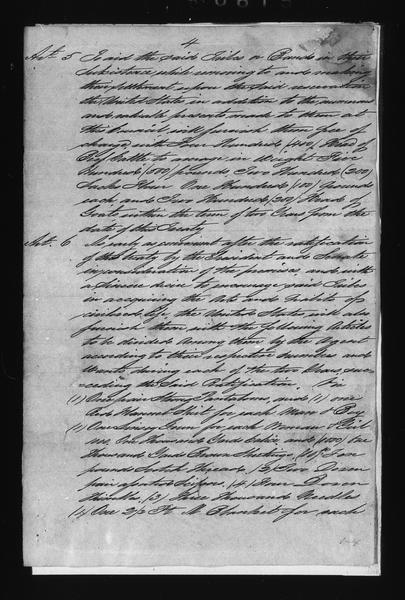 4
Art. 5 To aid the said Tribes or Bands in their
Subsistence while removing to and making
their settlement upon the said reservation
the United States in addition to the numerous
and valuable presents made to them at
this Council, will furnish them free of
charge, with Five Hundred (500) Head of
Beef Cattle to average in weight Five
Hundred (500) pounds, Two Hundred (200)
Sacks Flour One Hundred (100) pounds
each, and Two Hundred (200) Head of
Goats within the term of two Years from the
date of this Treaty
Art. 6 As early as convenient after the ratification
of this treaty by the President and Senate
in consideration of the premises, and with
a sincere desire to encourage said Tribes
in acquiring the Arts and Habits of
civilized life, the United States will also
furnish them with the following Articles
to be divided among them by the Agent
according to their respective numbers and
wants, during each of the two Years, suc-
ceeding the said Ratification. Viz
(1) One pair Strong Pantaloons, and (1) one
Red Flannel Shirt for each Man & Boy
(1) One Linsey Gown for each Woman & Girl
One Thousand Yards Calico, and (1000) One
Thousand Yards Brown Sheeting,
pounds Scotch Thread, (2) Two Dozen
pairs Scissors, (4) Four Dozen
Thimbles, (3) Three Thousand Needles
(1) One 2½ Pt. M. Blanket for each